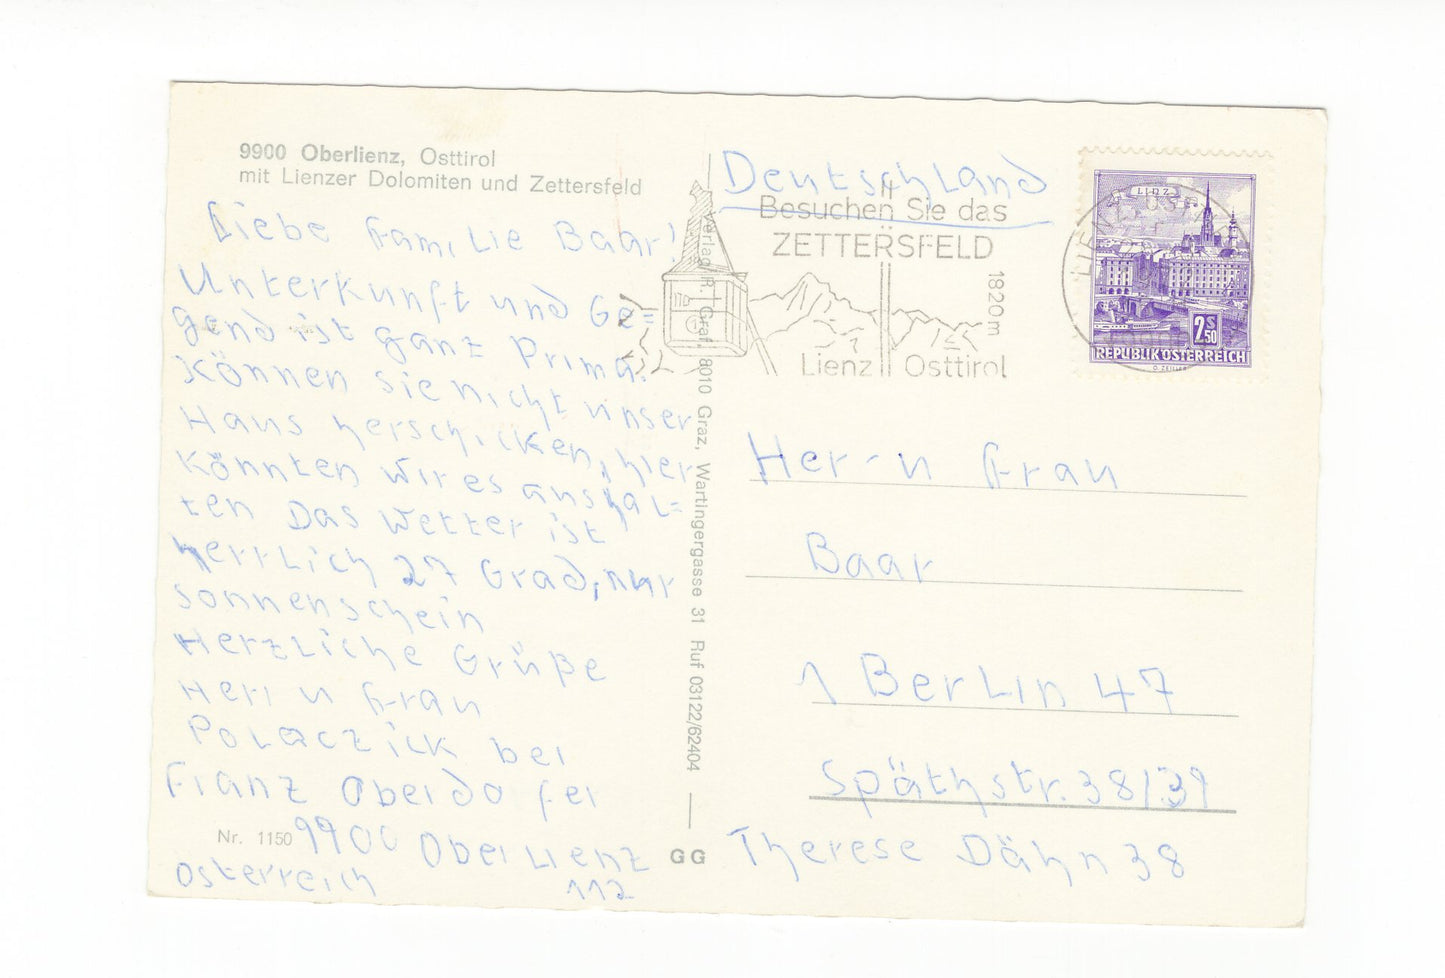 9900 Oberlienz, Osttirol
mit Lienzer Dolomiten und Zettersfeld
Liebe Familie Baar!
Unterkunft und Ge=
gend ist ganz Prima.
Können sie nicht unser
Haus herschicken, hier
Könnten wir es aushal=
ten Das Wetter ist
herrlich 27 Grad, nur
sonnenschein
Herzliche Grüße
Herr u Frau
Polaczick bei
Franz Oberdorfer
9900 Oberlienz
112
Österreich
Nr. 1150
Verlag R. Graf, 8010 Graz, Wartingergasse 31 Ruf 03122/62404
GG
Deutschland
Besuchen Sie das
ZETTERSFELD
1820m
Lienz Osttirol
LINZ
2S50
REPUBLIK ÖSTERREICH
O. ZEILLER
Herr u Frau
Baar
1 Berlin 47
Späthstr. 38/39
Therese Dähn 38